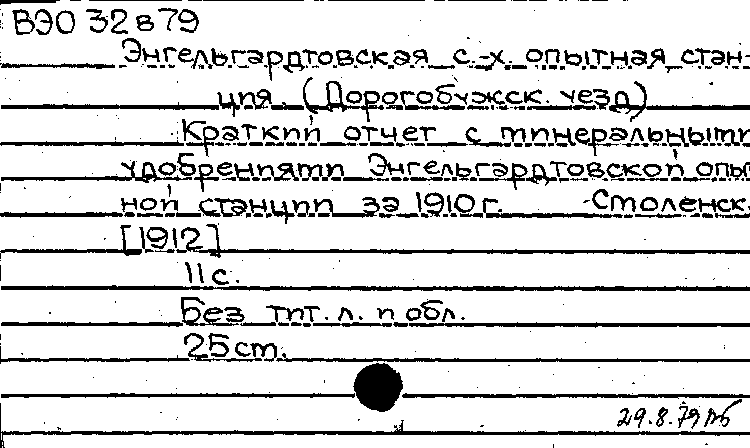 ВЭО 32 в 79
Энгельгардтовская с.-х. опытная стан-
ция. (Дорогобужск. уезд)
Краткий отчет с минеральными
удобрениями Энгельгардтовской опы
ной станции за 1910 г. - Смоленск.
[1912]
11 с.
Без тит. л. и обл.
25 см.
29.8.79